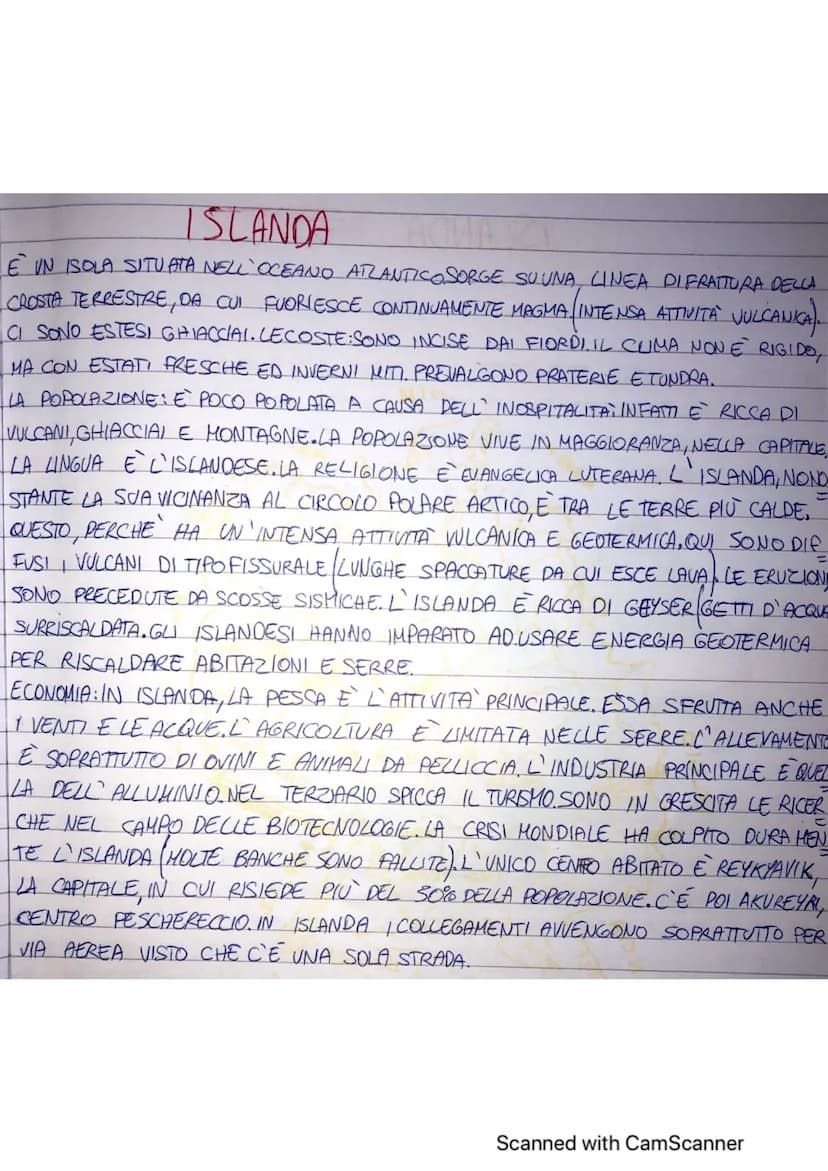 ISLANDA
È UN ISOLA SITUATA NELL'OCEANO ATLANTICO.SORGE SU UNA LINEA DI FRATTURA DELLA
CROSTA TERRESTRE, DA CUI FUORIESCE CONTINUAMENTE MAGMA (INTENSA ATTIVITÀ VULCANICA).
CI SONO ESTESI GHIACCIAI. LE COSTE: SONO INCISE DAI FIORDI. IL CLIMA NON È RIGIDO,
MA CON ESTATI FRESCHE ED INVERNI MITI. PREVALGONO PRATERIE E TUNDRA.
LA POPOLAZIONE: È POCO POPOLATA A CAUSA DELL'INOSPITALITÀ: INFATTI È RICCA DI
VULCANI, GHIACCIAI E MONTAGNE. LA POPOLAZIONE VIVE IN MAGGIORANZA, NELLA CAPITALE,
LA LINGUA È L'ISLANDESE. LA RELIGIONE È EVANGELICA LUTERANA. L'ISLANDA, NONO
STANTE LA SUA VICINANZA AL CIRCOLO POLARE ARTICO, È TRA LE TERRE PIÙ CALDE.
QUESTO, PERCHÈ HA UN'INTENSA ATTIVITÀ VULCANICA E GEOTERMICA. QUI SONO DIF
FUSI I VULCANI DI TIPO FISSURALE (LUNGHE SPACCATURE DA CUI ESCE LAVA). LE ERUZIONI
SONO PRECEDUTE DA SCOSSE SISMICHE. L'ISLANDA È RICCA DI GEYSER (GETTI D'ACQUA
SURRISCALDATA. GLI ISLANDESI HANNO IMPARATO AD USARE ENERGIA GEOTERMICA
PER RISCALDARE ABITAZIONI E SERRE.
ECONOMIA: IN ISLANDA, LA PESCA È L'ATTIVITÀ PRINCIPALE. ESSA SFRUTTA ANCHE
I VENTI E LE ACQUE. L'AGRICOLTURA È LIMITATA NELLE SERRE. L'ALLEVAMENTO
È SOPRATTUTTO DI OVINI E ANIMALI DA PELLICCIA. L'INDUSTRIA PRINCIPALE È QUEL
LA DELL'ALLUMINIO. NEL TERZIARIO SPICCA IL TURISMO. SONO IN CRESCITA LE RICER
CHE NEL CAMPO DELLE BIOTECNOLOGIE. LA CRISI MONDIALE HA COLPITO DURAMEN
TE L'ISLANDA (MOLTE BANCHE SONO FALLITE). L'UNICO CENTRO ABITATO È REYKYAVIK,
LA CAPITALE, IN CUI RISIEDE PIÙ DEL 50% DELLA POPOLAZIONE. C'È POI AKUREYRI,
CENTRO PESCHERECCIO. IN ISLANDA I COLLEGAMENTI AVVENGONO SOPRATTUTTO PER
VIA AEREA VISTO CHE C'È UNA SOLA STRADA.
Scanned with CamScanner